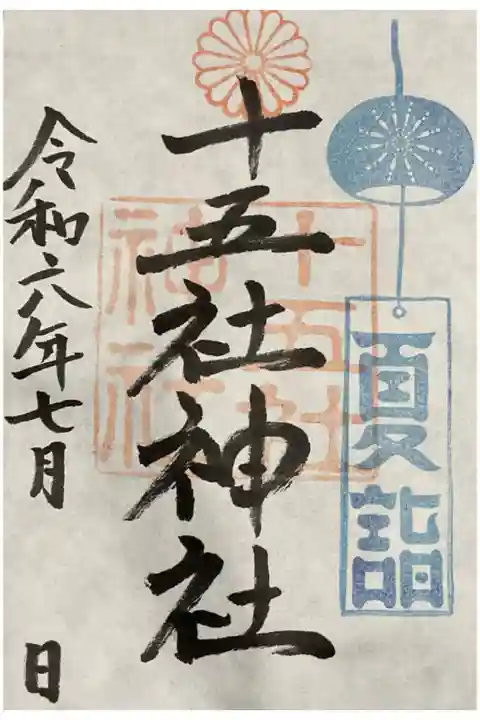 夏詣
十五社神社
十五社
神社
令和六年七月 日